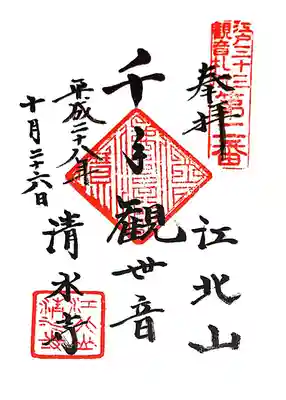 江戸三十三
観音札所第二番
奉拝
江北山
千手観世音
平成二十八年
十月二十六日
清水寺